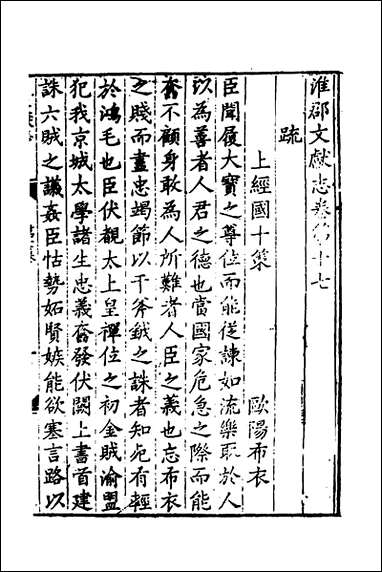 淮郡文獻志卷第十七
疏
上經國十策 歐陽布衣
臣聞履大寶之尊位而能從諫如流樂取於人
以為善者人君之德也當國家危急之際而能
奮不顧身敢為人所難者人臣之義也忘布衣
之賤而盡忠竭節以干斧鉞之誅者知死有輕
於鴻毛也臣伏觀太上皇禪位之初金賊渝盟
犯我京城太學諸生忠義奮發伏闕上書首建
誅六賊之議姦臣怙勢妬賢嫉能欲塞言路以